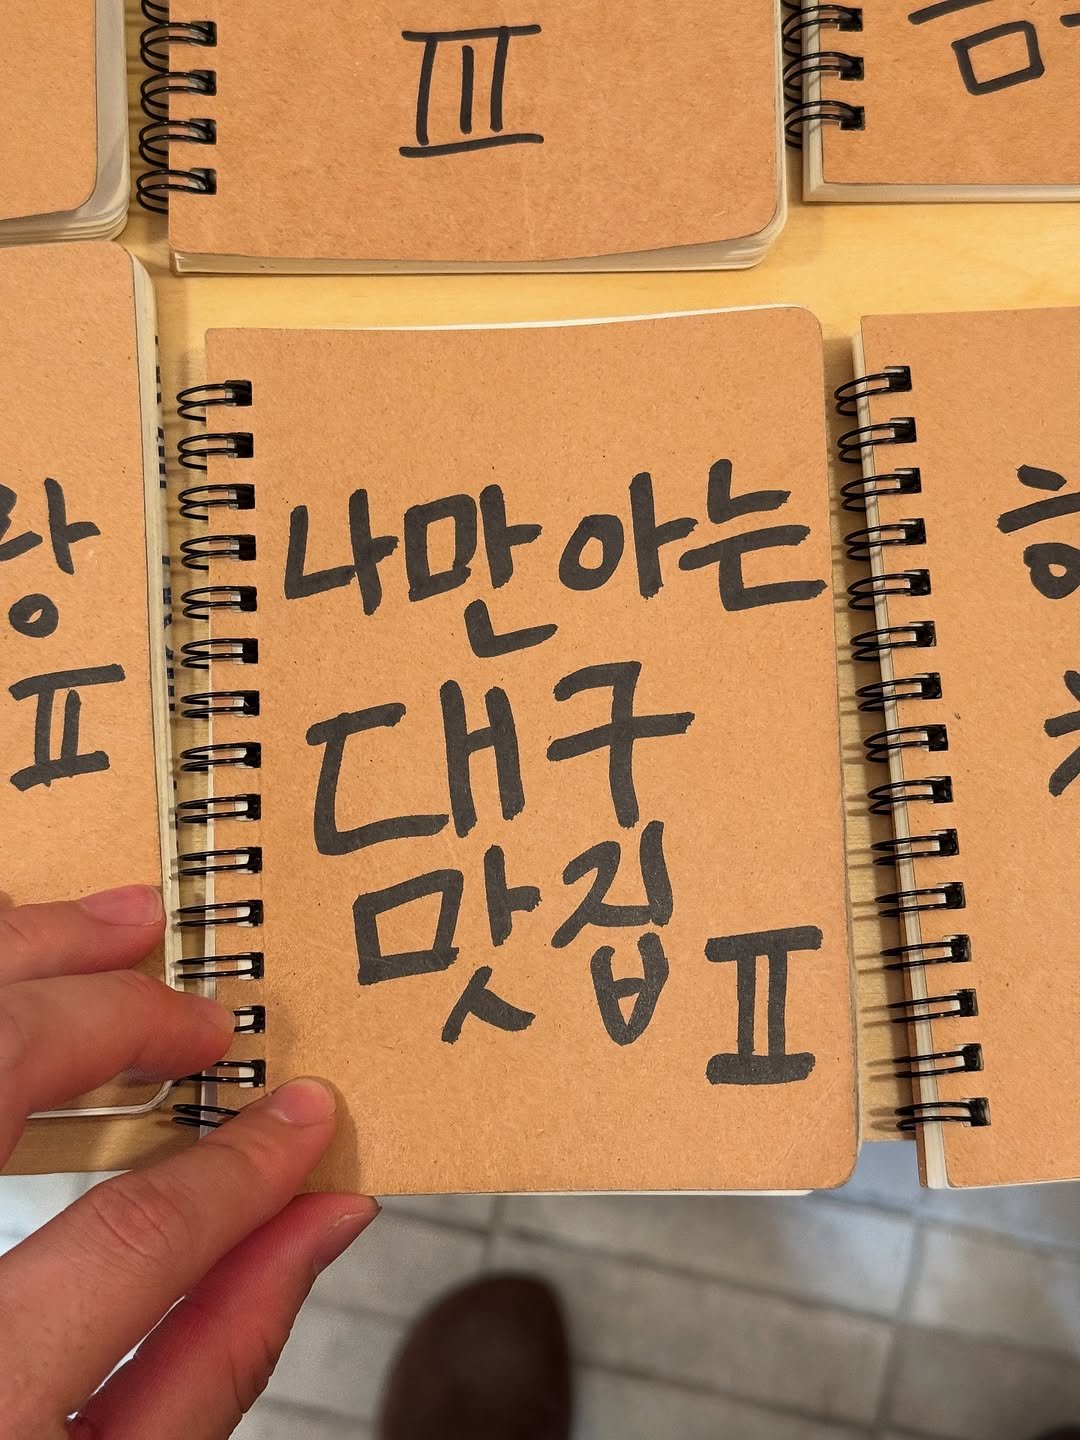 Ⅲ
나만 아는
대구
맛집 Ⅱ
랑
Ⅱ